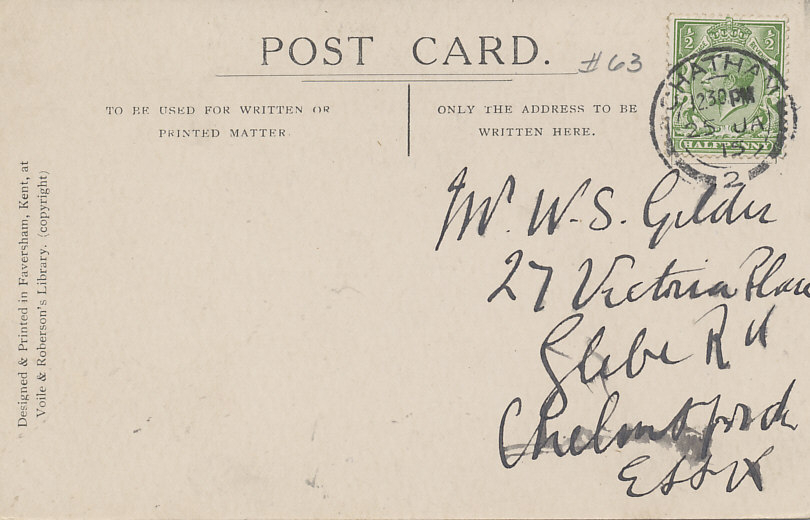 POST CARD.
#63
TO BE USED FOR WRITTEN OR
PRINTED MATTER.
ONLY THE ADDRESS TO BE
WRITTEN HERE.
½ ½
HALFPENNY
CHATHAM
12.30 PM
25 JA
15
2
Mr. W. S. Gilder
27 Victoria Place
Glebe Rd
Chelmsford
Essex
Designed & Printed in Faversham, Kent, at
Voile & Roberson's Library. (copyright)